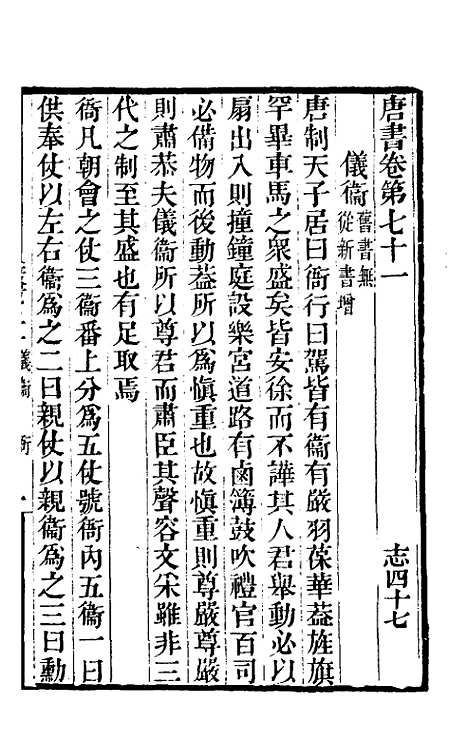 唐書卷第七十一 志四十七
儀衞 舊書無
從新書增
唐制天子居曰衙行曰駕皆有衞有嚴羽葆華蓋旌旗
罕畢車馬之衆盛矣皆安徐而不譁其人君舉動必以
扇出入則撞鐘庭設樂宮道路有鹵簿鼓吹禮官百司
必備物而後動蓋所以為愼重也故愼重則尊嚴尊嚴
則肅恭夫儀衞所以尊君而肅臣其聲容文采雖非三
代之制至其盛也有足取焉
衙凡朝會之仗三衞番上分為五仗號衙內五衞一曰
供奉仗以左右衞為之二曰親仗以親衞為之三曰勳